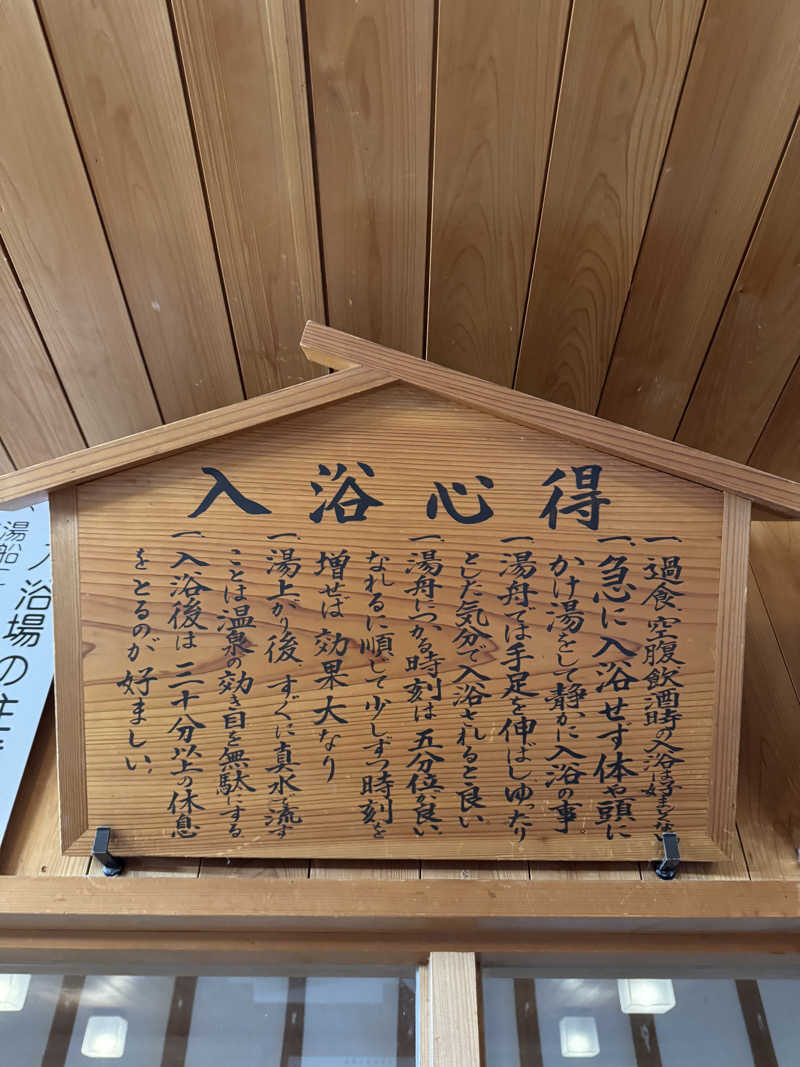 入浴心得
一、過食、空腹飲酒時の入浴は好ましくない
一、急に入浴せず体や頭に
かけ湯をして静かに入浴の事
一、湯舟では手足を伸ばしゆったり
とした気分で入浴されると良い
一、湯舟につかる時刻は五分位が良い
なれるに順じて少しずつ時刻を
増せば効果大なり
一、湯上がり後、すぐに真水で流す
ことは温泉の効き目を無駄にする
一、入浴後は三十分以上の休息
をとるのが好ましい、
入浴場の注
湯船